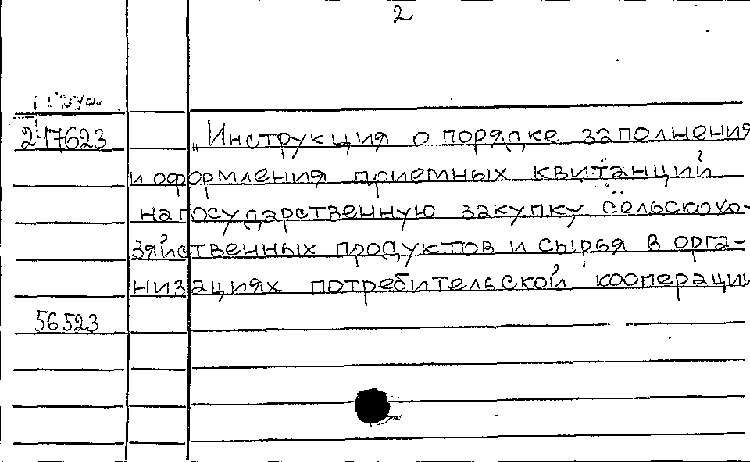 2
217623 „Инструкция о порядке заполнения
и оформления приемных квитанций
на государственную закупку сельскохо-
зяйственных продуктов и сырья в орга-
низациях потребительской кооперации
56523